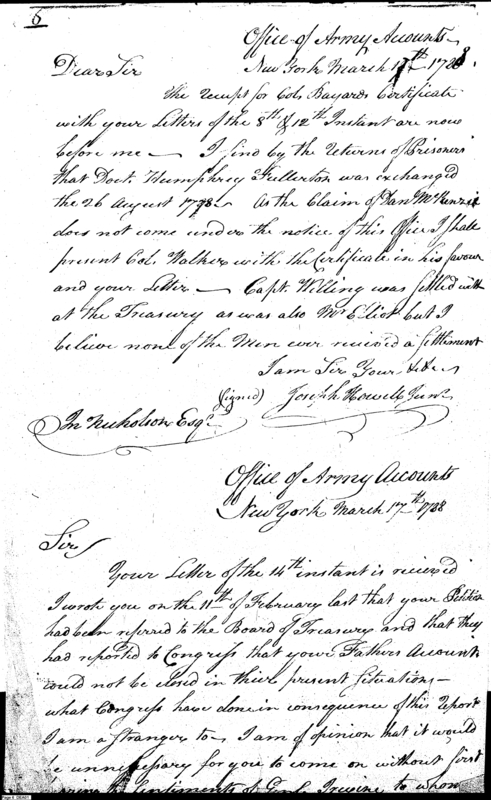 6
Office of Army Accounts
New York March 17th 1788.
Dear Sir
The receipt for Cols Bayards Certificate
with your Letters of the 8th & 12th Instant are now
before me — I find by the returns of Prisoners
that Doct. Humphrey Fullerton was exchanged
the 26 August 1778 — As the Claim of Dan McKenzie
does not come under the notice of this Office I shall
present Col. Walker with the Certificate in his favour
and your Letter — Capt. Willing was settled with
at the Treasury as was also Mr Eliot but I
believe none of the Men ever received a settlement
I am Sir Your &c &c
(signed) Joseph Howell Junr
Jn Nicholson Esqr
Office of Army Accounts
New York March 17th 1788
Sir
Your Letter of the 14th instant is received
I wrote you on the 11th of February last that your Petition
had been refered to the Board of Treasury and that they
had reported to Congress that your Fathers Account
could not be closed in their present situation —
what Congress have done in consequence of this Report
I am a stranger to — I am of opinion that it would
be unnecessary for you to come on without first
the sentiments of Genl. Irvine to whom